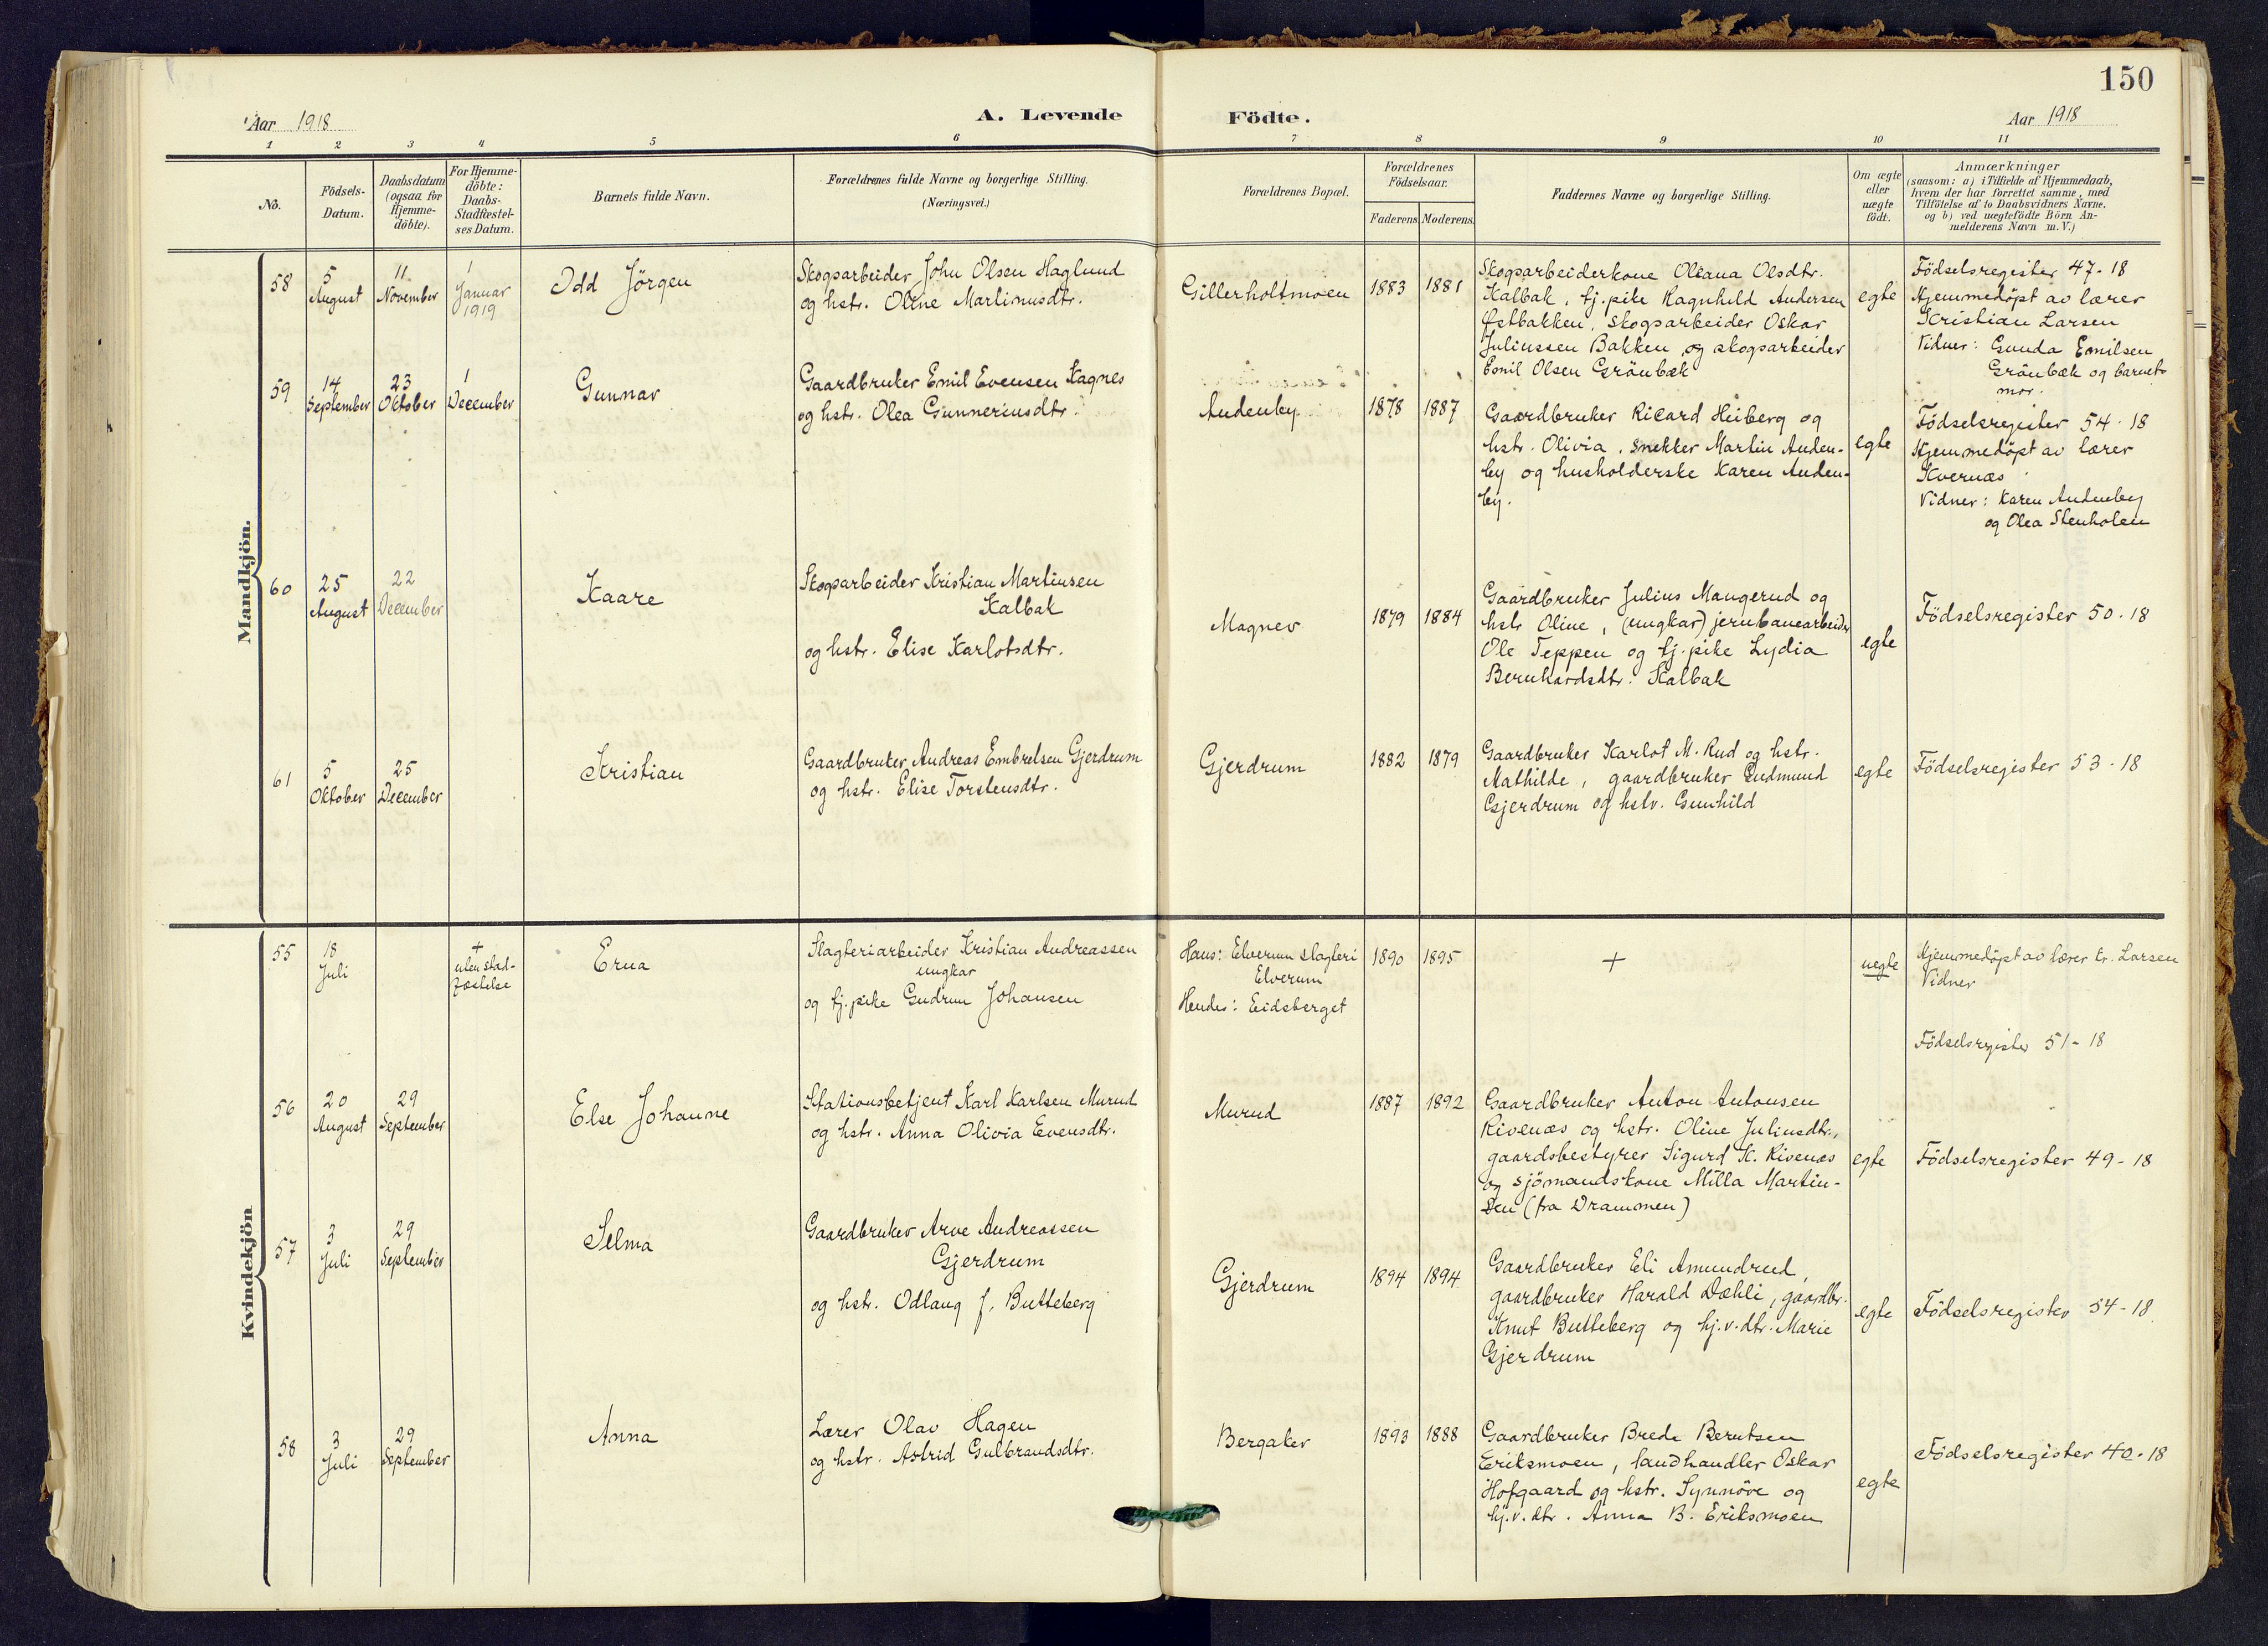 150
Aar 1918
A. Levende
Födte.
Aar 1918
1 2 3 4 5 6 7 8 9 10 11
No.
Födsels-
Datum.
Daabsdatum
(ogsaa for
Hjemme-
döbte).
For Hjemme-
döbte:
Daabs-
Stadfæstel-
ses Datum.
Barnets fulde Navn.
Forældrenes fulde Navne og borgerlige Stilling.
(Næringsvei.)
Forældrenes Bopæl.
Forældrenes
Födselsaar.
Faderens
Moderens
Faddernes Navne og borgerlige Stilling.
Om ægte
eller
uægte
födt.
Anmærkninger
(saasom: a) i Tilfælde af Hjemmedaab,
hvem der har forrettet samme, med
Tilföielse af to Daabsvidners Navne.
og b) ved uægtefödte Börn An-
melderens Navn m. V.)
Mandkjön.
58
5
August
11
November
1
Januar
1919
Odd Jörgen
Skogsarbeider John Olsen Haglund
og hstr. Oline Martinusdtr.
Gillerholtmoen
1883
1881
Skogsarbeiderkone Oliana Olsdtr.
Kalbak, tj.pike Ragnhild Andersen
Østbakken, skogsarbeider Oskar
Juliussen Bakken, og skogsarbeider
Emil Olsen Grönbæk
egte
Födselsregister 47-18
Hjemmedöpt av lærer
Kristian Larsen
Vidner: Gunda Emilsen
Grönbæk og barnets
mor.
59
14
September
23
Oktober
1
December
Gunnar
Gaardbruker Emil Evensen Kagnes
og hstr. Olea Gunneriusdtr.
Audenby
1878
1887
Gaardbruker Ricard Heiberg og
hstr. Olivia, snekker Martin Auden-
by og husholderske Karen Auden-
by.
egte
Födselsregister 54-18
Hjemmedöpt av lærer
Kvernæs
Vidner: Karen Audenby
og Olea Stenholen
60
25
August
22
December
Kaare
Skogsarbeider Kristian Martinsen
Kalbak
og hstr. Elise Karlotsdtr.
Magner
1879
1884
Gaardbruker Julius Maugerud og
hstr Oline, (ungkar) jernbanearbeider
Ole Teppen og tj.pike Lydia
Bernhardsdtr. Kalbak
egte
Födselsregister 50-18
61
5
Oktober
25
December
Kristian
Gaardbruker Andreas Embretsen Gjerdrum
og hstr. Elise Torstensdtr.
Gjerdrum
1882
1879
Gaardbruker Karlot M. Rud og hstr.
Mathilde, gaardbruker Gudmund
Gjerdrum og hstr. Gunhild
egte
Födselsregister 53-18
Kvindekjön
55
18
Juli
+
uten stad-
fæstelse
Erna
Slagteriarbeider Kristian Andreassen
ungkar
og tj.pike Gudrun Johansen
Hans: Elverum slagteri
Elverum
Hendes: Eidsberget
1890
1895
+
uegte
Hjemmedöpt av lærer Kr. Larsen
Vidner
Födselsregister 51-18
56
20
August
29
September
Else Johanne
Stationsbetjent Karl Karlsen Murud
og hstr. Anna Olivia Evensdtr.
Murud
1887
1892
Gaardbruker Anton Antonsen
Rivenæs og hstr. Oline Juliusdtr.,
gaardsbestyrer Sigurd K. Rivenæs
og sjömandskone Milla Martin-
sen (fra Drammen)
egte
Födselsregister 49-18
57
3
Juli
29
September
Selma
Gaardbruker Arve Andreassen
Gjerdrum
og hstr. Odlaug f. Butteberg
Gjerdrum
1894
1894
Gaardbruker Eli Amundrud,
gaardbruker Harald Dæhli, gaardbr.
Knut Butteberg og hj.v.dtr. Marie
Gjerdrum
egte
Födselsregister 54-18
58
3
Juli
29
September
Anna
Lærer Olav Hagen
og hstr. Astrid Gulbrandsdtr.
Bergaker
1893
1888
Gaardbruker Brede Berntsen
Eriksmoen, landhandler Oskar
Hofgaard og hstr. Synnöve og
hj.v.dtr. Anna B. Eriksmoen
egte
Födselsregister 40-18